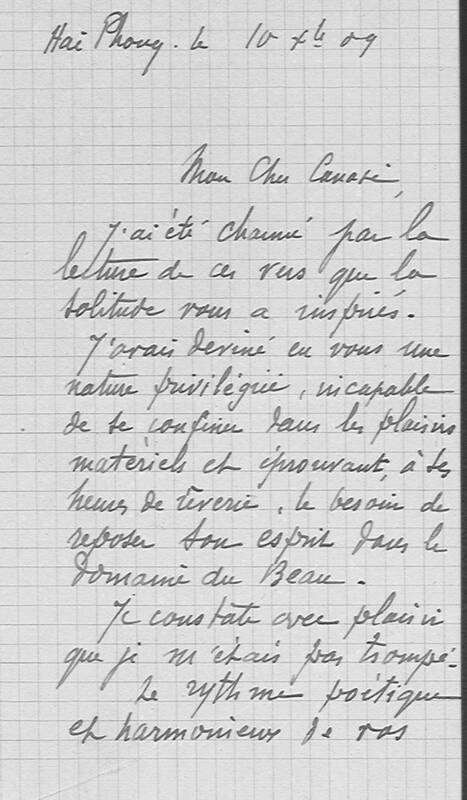 Hai Phong. le 10 Xbe 09
Mon Cher Canasi,
J'ai été charmé par la
lecture de ces vers que la
solitude vous a inspirés.
J'avais deviné en vous une
nature privilégiée, incapable
de se confiner dans les plaisirs
matériels et éprouvant, à ses
heures de rêverie, le besoin de
reposer son esprit dans le
domaine du Beau.
Je constate avec plaisir
que je m'étais pas trompé.
Le rythme poétique
et harmonieux de vos